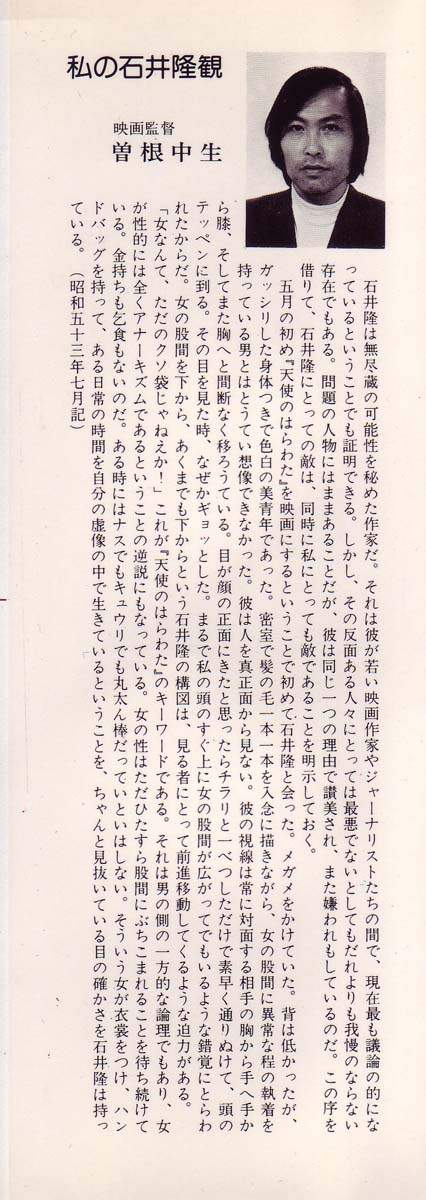 私の石井隆観
映画監督
曽根中生
石井隆は無尽蔵の可能性を秘めた作家だ。それは彼が若い映画作家やジャーナリストたちの間で、現在最も議論の的にな
っているということでも証明できる。しかし、その反面ある人々にとっては最悪でないとしてもだれよりも我慢のならない
存在でもある。問題の人物にはままあることだが、彼は同じ一つの理由で讃美され、また嫌われもしているのだ。この序を
借りて、石井隆にとっての敵は、同時に私にとっても敵であることを明示しておく。
五月の初め『天使のはらわた』を映画にするということで初めて石井隆と会った。メガメをかけていた。背は低かったが、
ガッシリした身体つきで色白の美青年であった。密室で髪の毛一本一本を入念に描きながら、女の股間に異常な程の執着を
持っている男とはとうてい想像できなかった。彼は人を真正面から見ない。彼の視線は常に対面する相手の胸から手へ手か
ら膝、そしてまた胸へと間断なく移ろうている。目が顔の正面にきたと思ったらチラリと一べつしただけで素早く通りぬけて、頭の
テッペンに到る。その目を見た時、なぜかギョッとした。まるで私の頭のすぐ上に女の股間が広がってでもいるような錯覚にとらわ
れたからだ。女の股間を下から、あくまでも下からという石井隆の構図は、見る者にとって前進移動してくるような迫力がある。
「女なんて、ただのクソ袋じゃねえか！」これが『天使のはらわた』のキーワードである。それは男の側の一方的な論理でもあり、女
が性的には全くアナーキズムであるということの逆説にもなっている。女の性はただひたすら股間にぶちこまれることを待ち続けて
いる。金持ちも乞食もないのだ。ある時にはナスでもキュウリでも丸太ん棒だっていといはしない。そういう女が衣裳をつけ、ハン
ドバッグを持って、ある日常の時間を自分の虚像の中で生きているということを、ちゃんと見抜いている目の確かさを石井隆は持っ
ている。（昭和五十三年七月記）